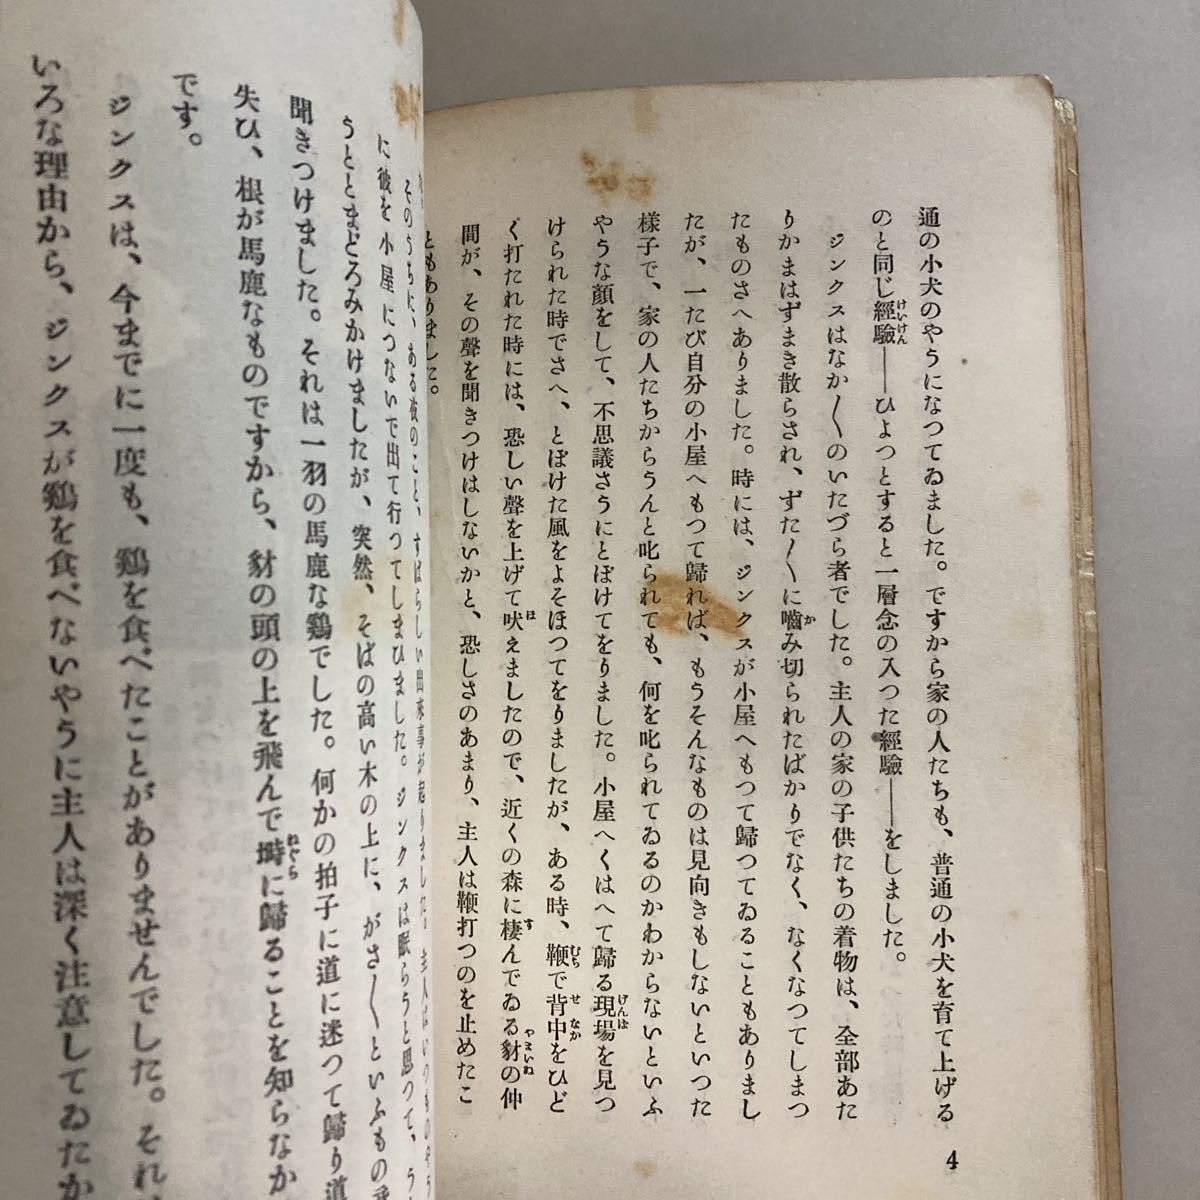 通の小犬のやうになつてゐました。ですから家の人たちも、普通の小犬を育て上げる
のと同じ經驗――ひよつとすると一層念の入つた經驗――をしました。
ジンクスはなか〳〵のいたづら者でした。主人の家の子供たちの着物は、全部あた
りかまはずまき散らされ、ずた〳〵に嚙み切られたばかりでなく、なくなつてしまつ
たものさへありました。時には、ジンクスが小屋へもつて歸つてゐることもありまし
たが、一たび自分の小屋へもつて歸れば、もうそんなものは見向きもしないといつた
樣子で、家の人たちからうんと叱られても、何を叱られてゐるのかわからないといふ
やうな顔をして、不思議さうにとぼけてをりました。小屋へくはへて歸る現場を見つ
けられた時でさへ、とぼけた風をよそほつてをりましたが、ある時、鞭で背中をひど
く打たれた時には、恐しい聲を上げて吠えましたので、近くの森に棲んでゐる豺の仲
間が、その聲を聞きつけはしないかと、恐しさのあまり、主人は鞭打つのを止めたこ
ともありました。
4
そのうちに、ある夜のこと、すばらしい出來事が起りました。主人はいつものやう
に彼を小屋につないで出て行つてしまひました。ジンクスは眠らうと思つて、う
うととまどろみかけましたが、突然、そばの高い木の上に、がさ〳〵といふもの
聞きつけました。それは一羽の馬鹿な鷄でした。何かの拍子に道に迷つて歸り道
失ひ、根が馬鹿なものですから、豺の頭の上を飛んで塒に歸ることを知らなか
です。
ジンクスは、今までに一度も、鷄を食べたことがありませんでした。それ
いろな理由から、ジンクスが鷄を食べないやうに主人は深く注意してゐたか